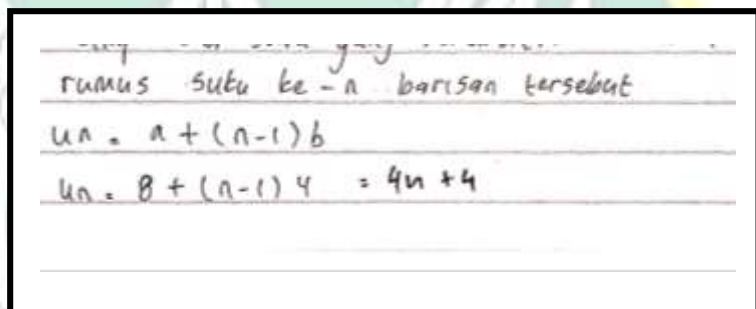 yang
rumus suku ke-n barisan tersebut
un = a + (n-1) b
un = 8 + (n-1) 4 = 4n + 4